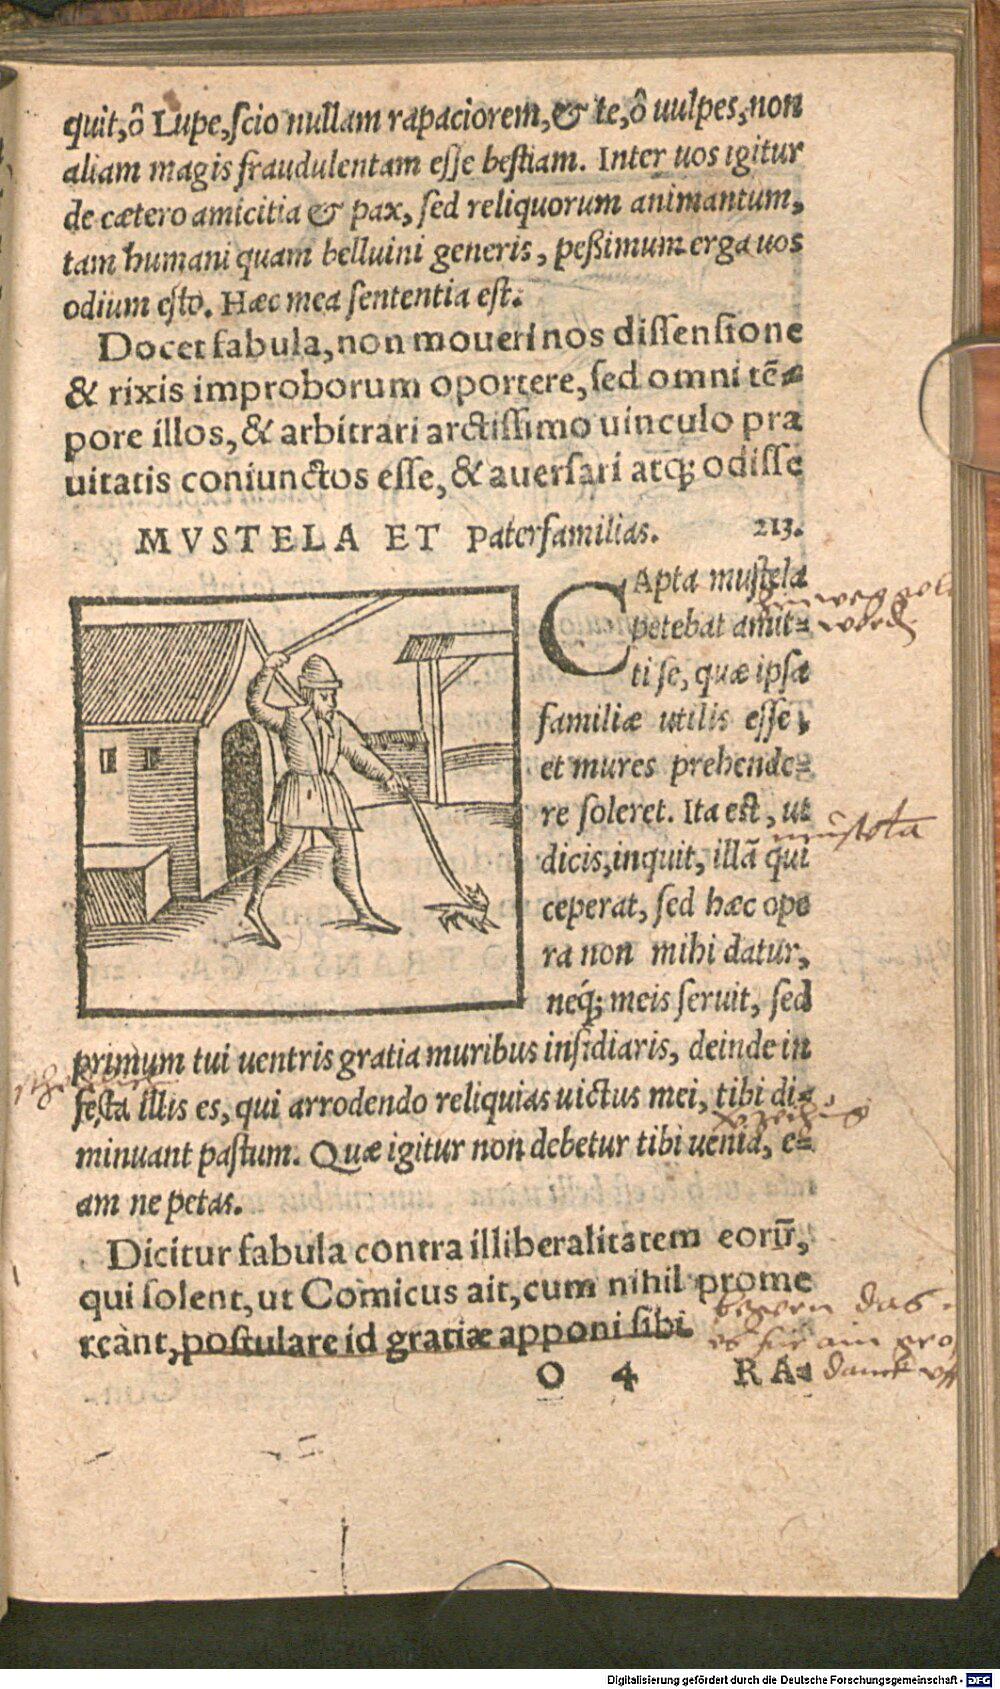 quit,ô Lupe,ſcio nullam rapaciorem,& te,ô uulpes,non
aliam magis fraudulentam eſſe beſtiam. Inter uos igitur
de cætero amicitia & pax, ſed reliquorum animantum,
tam humani quam belluini generis, peßimum erga uos
odium eſto. Hæc mea ſententia eſt.
Docet fabula, non moueri nos diſſenſione
& rixis improborum oportere, ſed omni tē⸗
pore illos, & arbitrari arctiſſimo uinculo pra
uitatis coniunctos eſſe, & auerſari atq; odiſſe
MVSTELA ET Paterfamilias. 213.
CApta muſtela
petebat amit⸗
ti ſe, quæ ipſa
familiæ utilis eſſe,
et mures prehende⸗
re ſoleret. Ita eſt, ut
dicis, inquit, illā qui
ceperat, ſed hæc ope
ra non mihi datur,
neq́; meis ſeruit, ſed
primum tui uentris gratia muribus inſidiaris, deinde in
feſta illis es, qui arrodendo reliquias uictus mei, tibi di⸗
minuant paſtum. Quæ igitur non debetur tibi uenia, e⸗
am ne petas.
Dicitur fabula contra illiberalitatem eorū,
qui ſolent, ut Comicus ait, cum nihil prome
reant, poſtulare id gratiæ apponi ſibi.
O 4 RA⸗
muſtela
das
danck
Digitalisierung gefördert durch die Deutsche Forschungsgemeinschaft - DFG